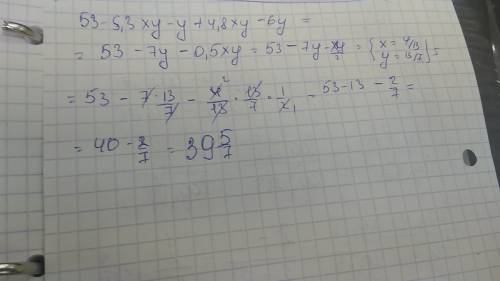 53 - 5,3xy - y + 4,8xy - 6y =
= 53 - 7y - 0,5xy = 53 - 7y - xy/2 = {x = 4/13 y = 13/7} =
= 53 - 7 · 13/7 - 4²/13 · 13/7 · 1/2₁ - 53 - 13 - 2/7 =
= 40 - 2/7 = 39 5/7